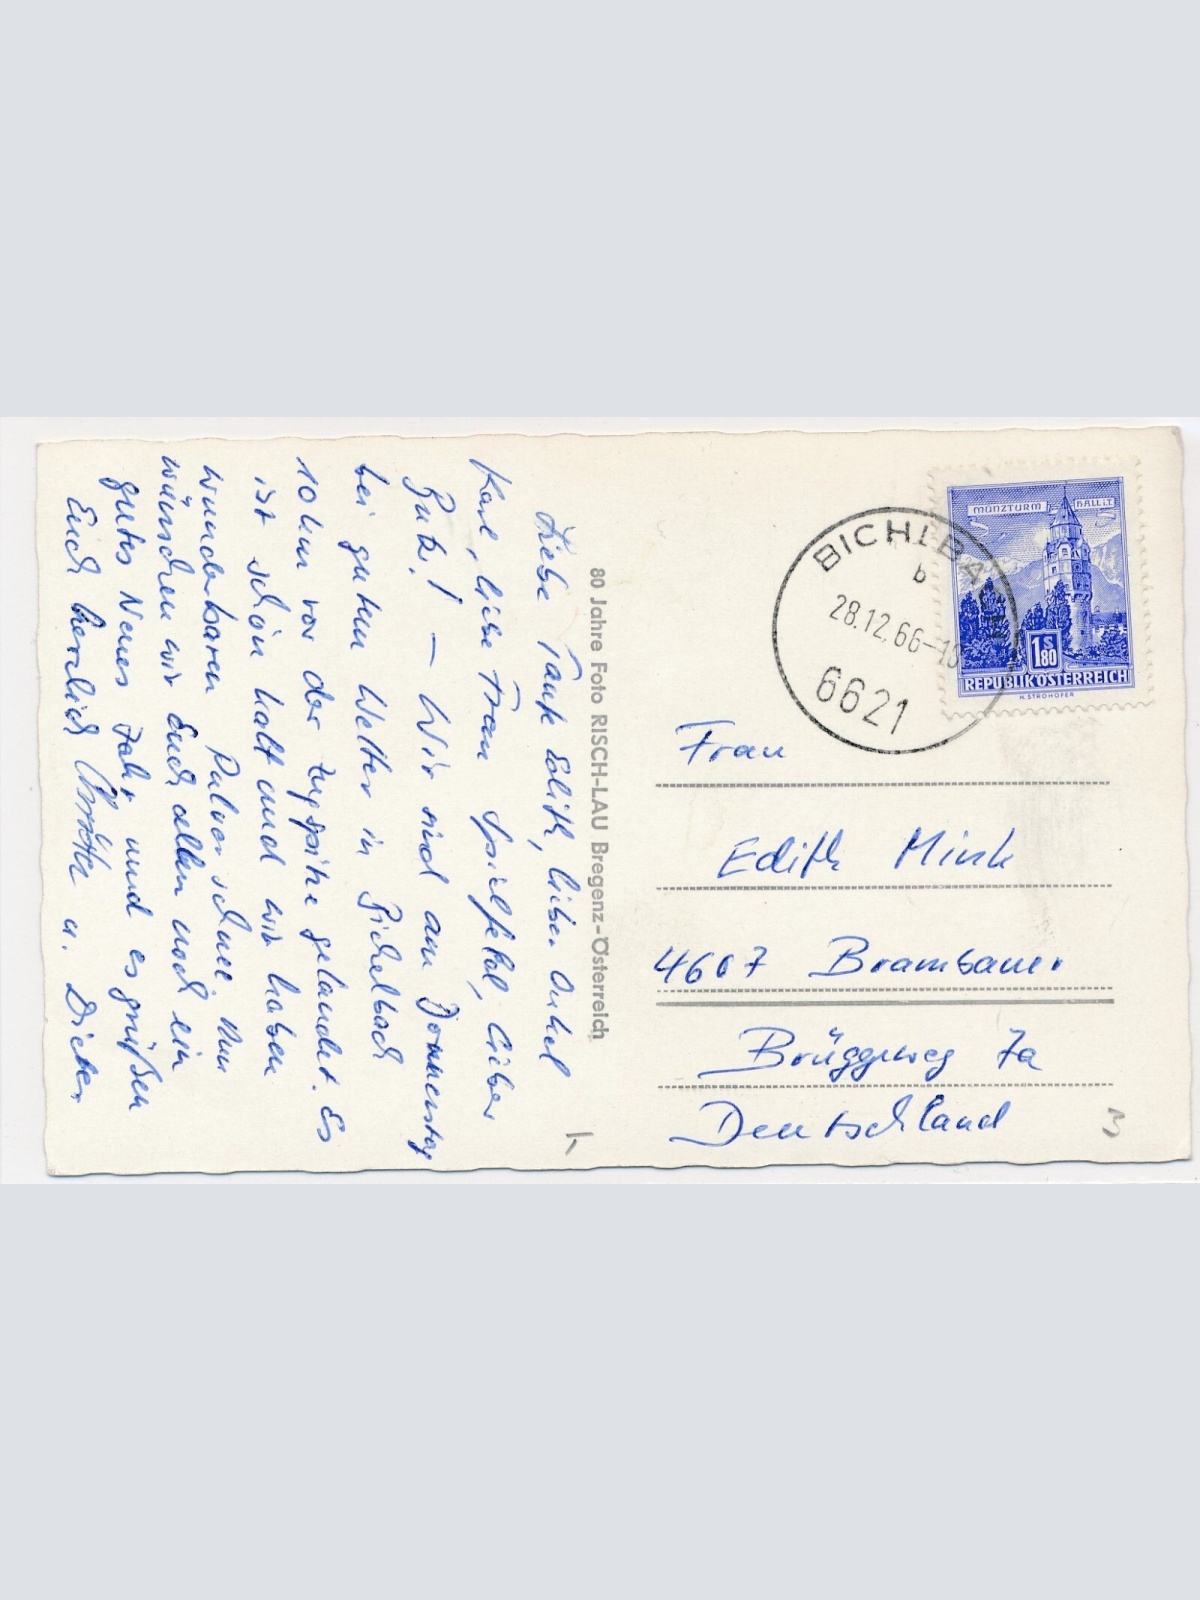 Liebe Tante Edith, lieber Onkel
Karl, liebe Frau Spielfeld, lieber
Gute! – Wir sind am Donnerstag
bei gutem Wetter in Bichelbach
10 km vor der Zugspitze gelandet. Es
ist schön kalt und wir haben
wunderbaren Pulverschnee. Nun
wünschen wir Euch allen noch ein
gutes Neues Jahr und es grüßen
Euch herzlich u. Dieter
80 Jahre Foto RISCH-LAU Bregenz-Österreich
MÜNZTURM HALL i.T.
1 S 80
REPUBLIK ÖSTERREICH
H. STROHOFER
BICHLBACH
b
28.12.66-10
6621
Frau
Edith Mink
4607 Brambauer
Brüggeweg 7a
Deutschland